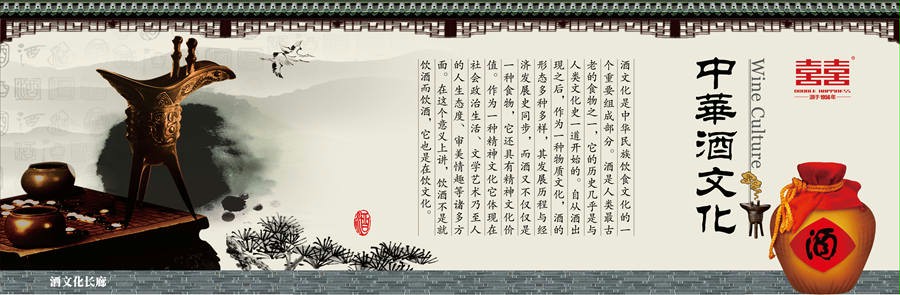 囍
DOUBLE HAPPINESS
源于1956年
中華酒文化
Wine Culture
酒文化是中华民族饮食文化的一
个重要组成部分。酒是人类最古
老的食物之一，它的历史几乎是与
人类文化史一道开始的。自从酒出
现之后，作为一种物质文化，酒的
形态多种多样，其发展历程与经
济发展史同步，而酒又不仅仅是
一种食物，它还具有精神文化价
值。作为一种精神文化它体现在
社会政治生活、文学艺术乃至人
的人生态度、审美情趣等诸多方
面。在这个意义上讲，饮酒不是就
饮酒而饮酒，它也是在饮文化。
酒
酒
酒文化长廊